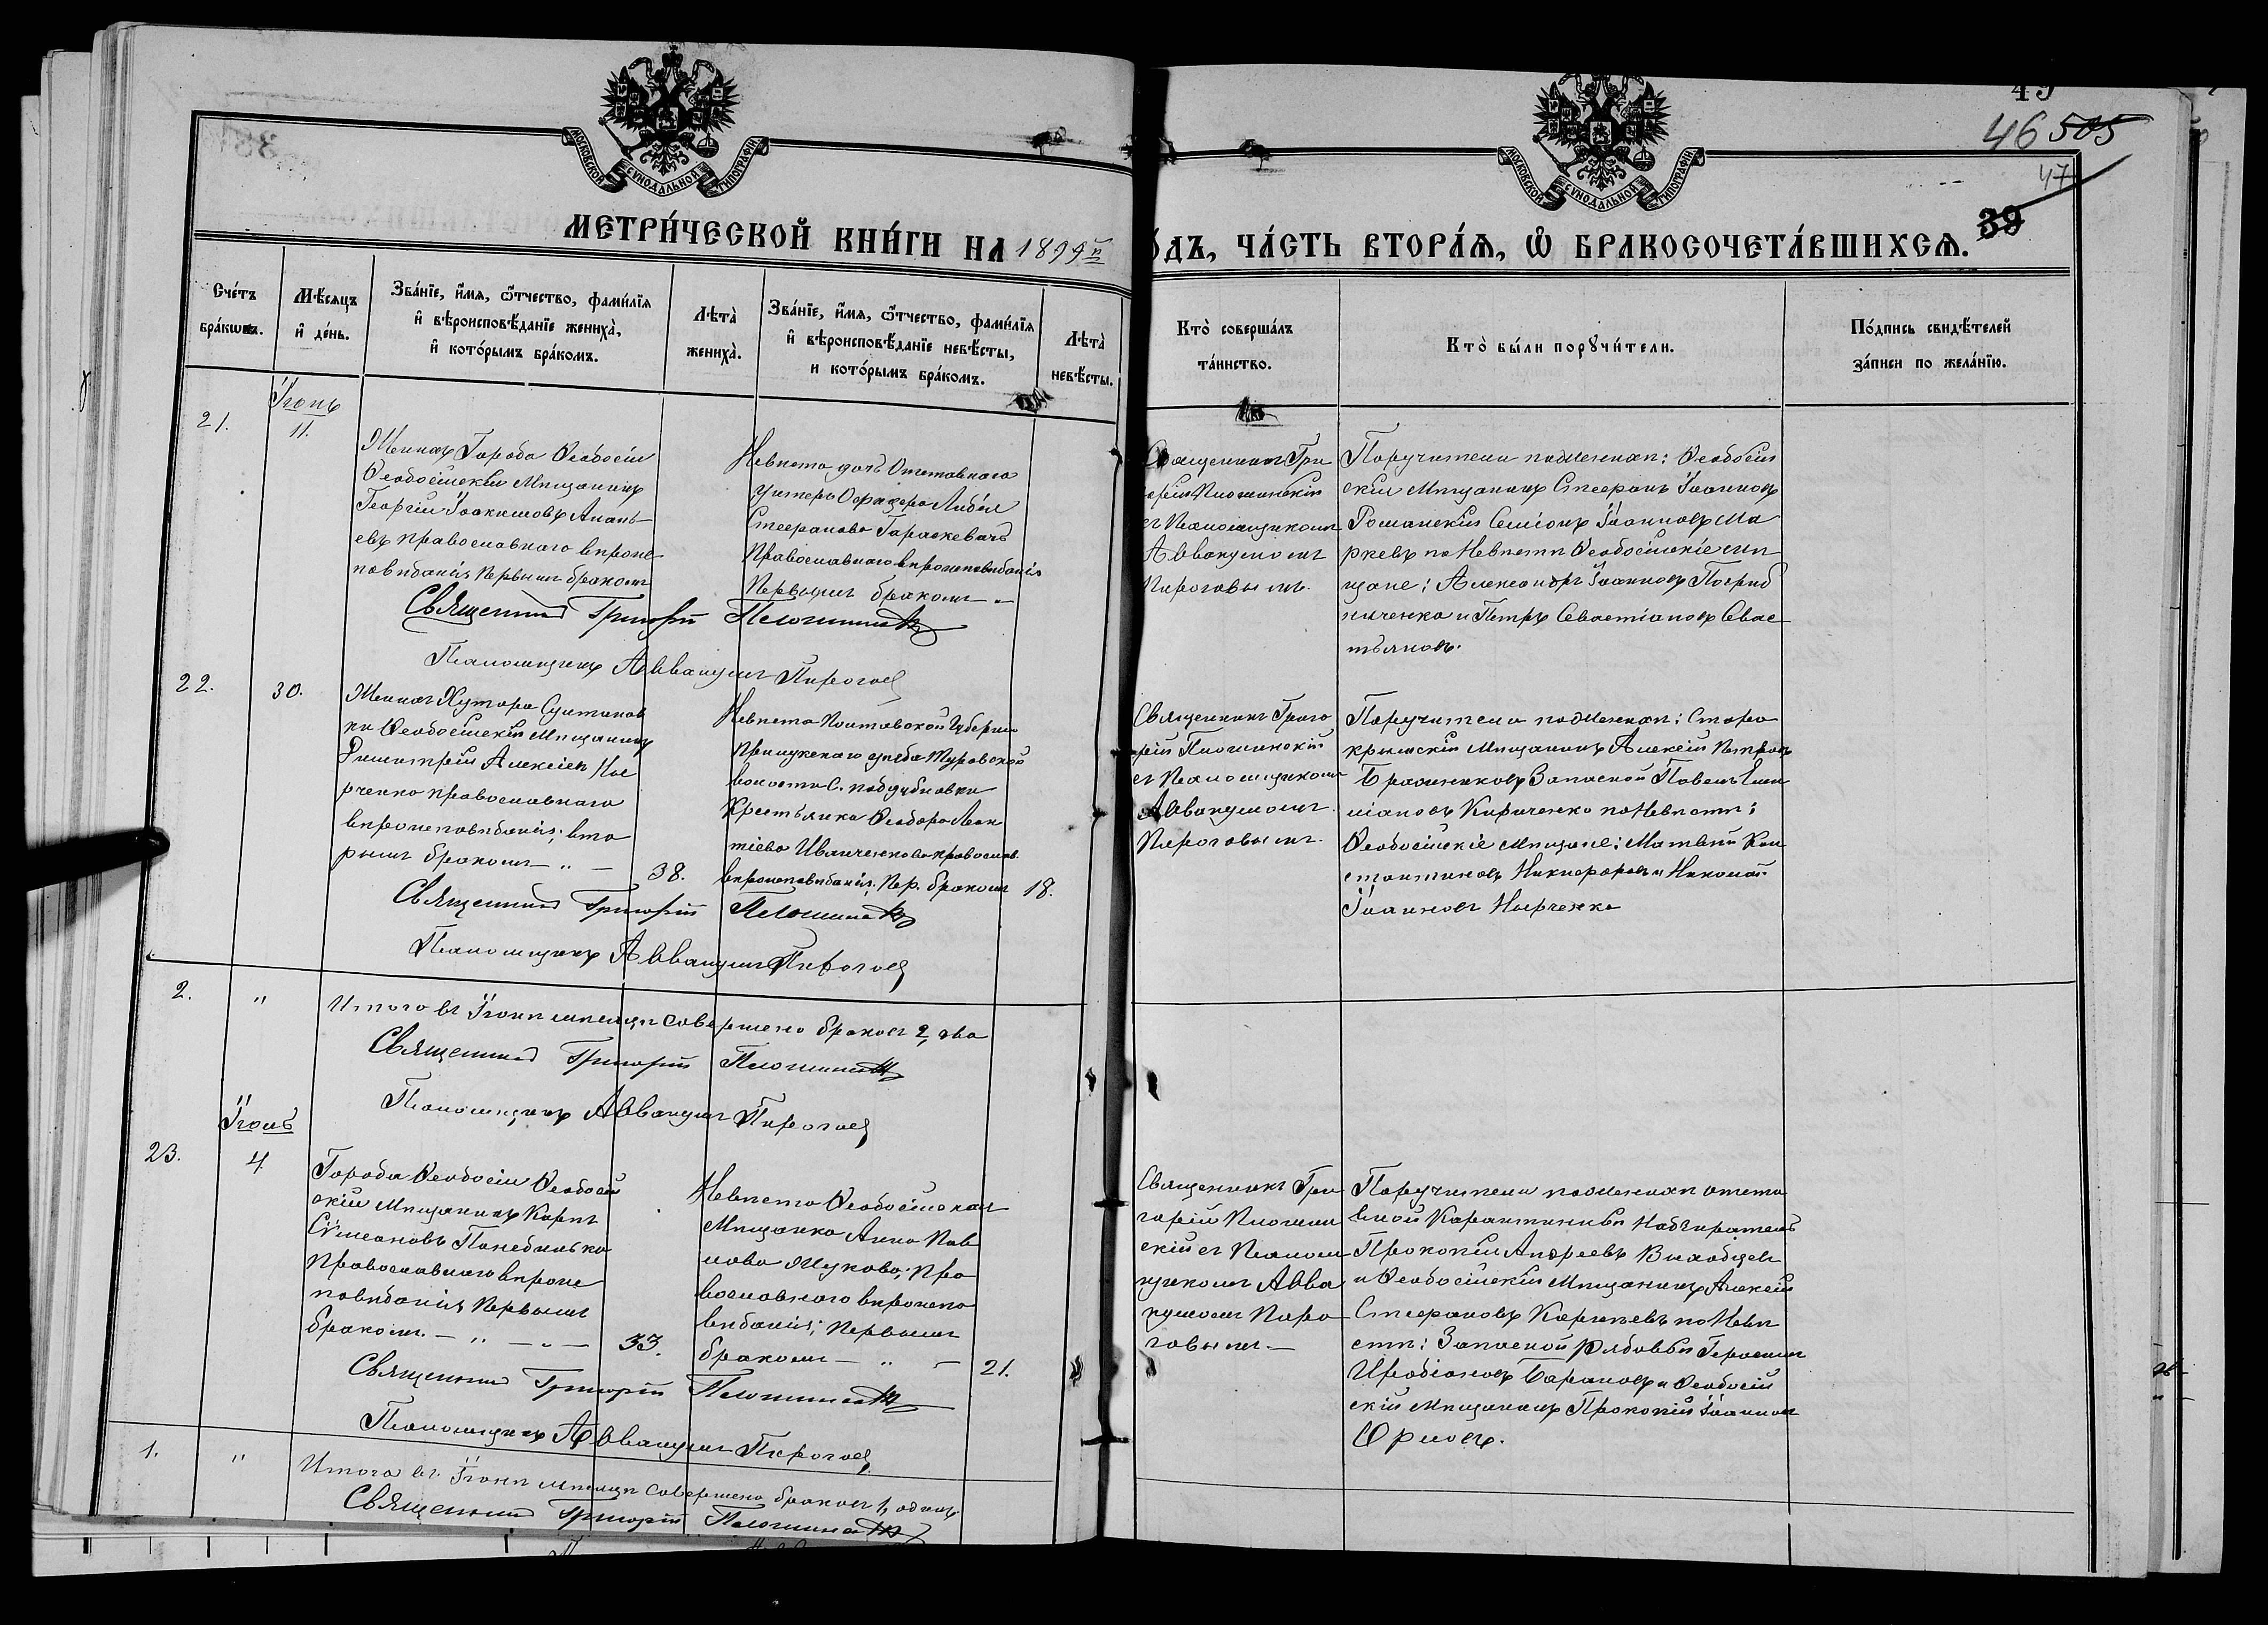 45
46 505
47
39
МОСКОВСКОЙ СѴНОДАЛЬНОЙ ТИПОГРАФІИ
МОСКОВСКОЙ СѴНОДАЛЬНОЙ ТИПОГРАФІИ
МЕТРИ́ЧЕСКОЙ КНИ́ГИ НА 1899й
ГО́ДЪ, ЧА́СТЬ ВТОРА́Ѧ, Ѿ БРАКОСОЧЕТА́ВШИХСѦ.
Сче́тъ бра́кѡвъ.
Мѣ́сяцъ и҆ де́нь.
Зва́нїе, и҆́мя, ѻ҆́тчество, фами́лїя и҆ вѣроисповѣ́данїе жениха̀, и҆ кото́рымъ бра́комъ.
Лѣта̀ жениха̀.
Зва́нїе, и҆́мя, ѻ҆́тчество, фами́лїя и҆ вѣроисповѣ́данїе невѣ́сты, и кото́рымъ бра́комъ.
Лѣта̀ невѣ́сты.
Кто̀ соверша́лъ та́инство.
Кто̀ бы́ли порꙋчи́тели.
По́дпись свидѣ́телей за́писи по жела́нїю.
21.
Іюнь
11.
Женихъ Города Ѳеодосіи
Ѳеодосійскій Мѣщанинъ
Георгій Іоакимовъ Анань-
евъ православнаго вѣроис-
повѣданія Первымъ бракомъ
Невѣста дочь Отставнаго
Унтеръ Офицера Любовь
Стефанова Гараскевичъ
Православнаго вѣроисповѣданія
Первымъ бракомъ
Священникъ Гри
горій
съ Псаломщикомъ
Аввакумомъ
Пироговымъ.
Поручители по женихѣ: Ѳеодосій
скій Мѣщанинъ Стефанъ Іоанновъ
Романскій Семіонъ Іоанновъ Ма
ркевъ по Невѣстѣ Ѳеодосійскіе мѣ
щане: Александръ Іоанновъ Погриб
ниченко и Петръ Севастіановъ Севас
тьяновъ.
Священникъ Григорій
Псаломщикъ Аввакумъ Пироговъ
22.
30.
Женихъ Хутора Султанов
ки Ѳеодосійскій Мѣщанинъ
Димитрій Алексіевъ Нос
рченко православнаго
вѣроисповѣданія; вто
рымъ бракомъ
38.
Невѣста Полтавской Губерніи
Прилукскаго уѣзда Туровской
волости С. Поддубновки
Крестьянка Ѳеодора Леон
тіева Иванченкова православ.
вѣроисповѣданія; Пер. бракомъ
18.
Священникъ Григо
рій
съ Псаломщикомъ
Аввакумомъ
Пироговымъ.
Поручители по женихѣ: Старо
крымскій Мѣщанинъ Алексій Петровъ
Бражниковъ Запасной Павелъ Еми
ліановъ Кириченко по Невѣстѣ:
Ѳеодосійскіе Мѣщане: Матвѣй Кон
стантиновъ Никифоровъ и Николай
Іоанновъ Нырченко
Священникъ Григорій
Псаломщикъ Аввакумъ Пироговъ
2.
"
Итого въ Іюнѣ мѣсяцѣ совершено браковъ 2, два
Священникъ Григорій
Псаломщикъ Аввакумъ Пироговъ
23.
Іюль
4.
Города Ѳеодосіи Ѳеодосій
скій Мѣщанинъ Карпъ
Сѵмеоновъ Понедилько
Православнаго вѣроис
повѣданія Первымъ
бракомъ.
33.
Невѣста Ѳеодосійская
Мѣщанка Анна Пав
лова Жукова; Пра
вославнаго вѣроиспо
вѣданія; Первымъ
бракомъ
21.
Священникъ Гри
горій
скій съ Псалом
щикомъ Авва
кумомъ Пиро
говымъ.
Поручители по женихѣ отста
вной Карантинный Надзиратель
Прокопій Андреевъ
и Ѳеодосійскій Мѣщанинъ Алексій
Стефановъ Карпевъ по Невѣ
стѣ: Запасной Рядовый Герасимъ
Иродіоновъ Барановъ и Ѳеодосій
скій Мѣщанинъ Прокопій Іоанновъ
Орловъ.
Священникъ Григорій
Псаломщикъ Аввакумъ Пироговъ
1.
"
Итого въ Іюлѣ мѣсяцѣ совершено браковъ 1, одинъ
Священникъ Григорій